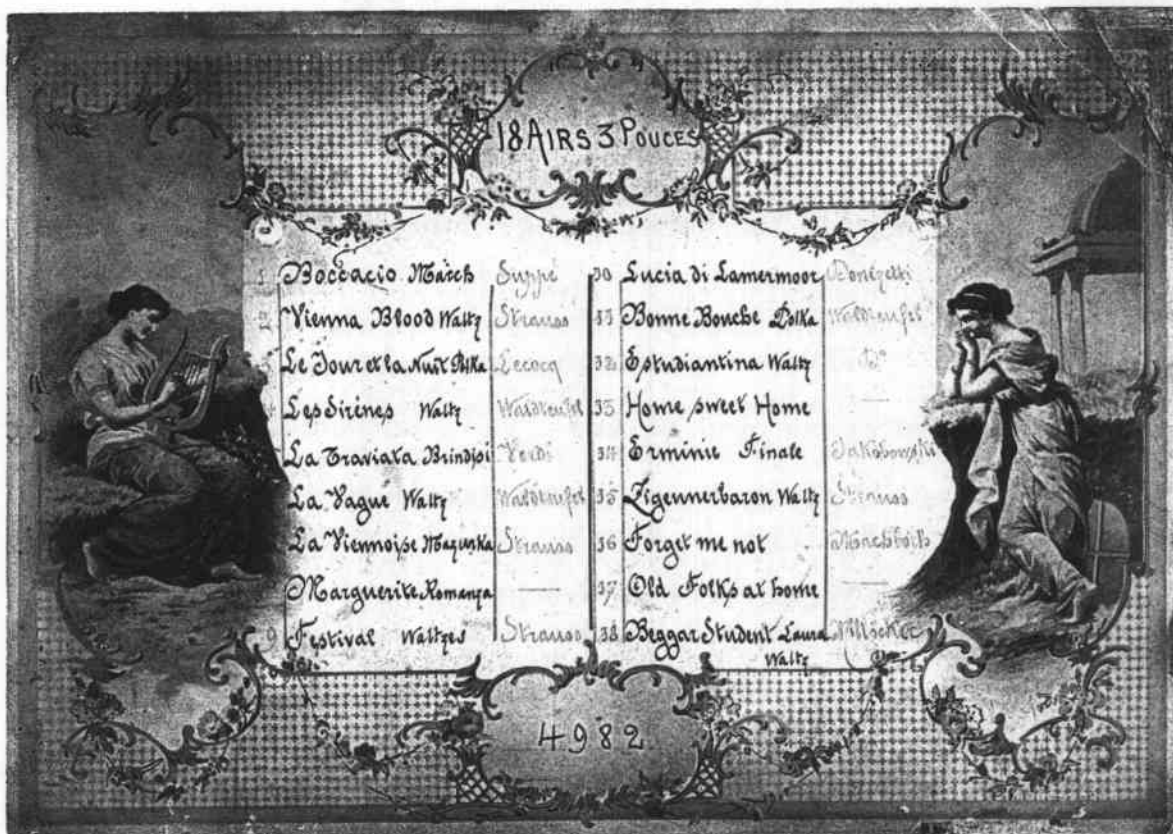 18 AIRS 3 POUCES
1 Boccacio March Suppé
2 Vienna Blood Waltz Strauss
3 Le Jour et la Nuit Polka Lecocq
4 Les Sirènes Waltz Waldteufel
La Traviata Brindisi Verdi
La Vague Waltz Waldteufel
La Viennoise Mazurka Strauss
Marguerite Romanza —
9 Festival Waltzes Strauss
30 Lucia di Lamermoor Donizetti
31 Bonne Bouche Polka Waldteufel
32 Estudiantina Waltz Dº
33 Home sweet Home —
34 Erminie Finale Jakobowski
35 Zigeunerbaron Waltz Strauss
36 Forget me not
37 Old Folks at home —
38 Beggar Student Laura Millöcker
Waltz
4982